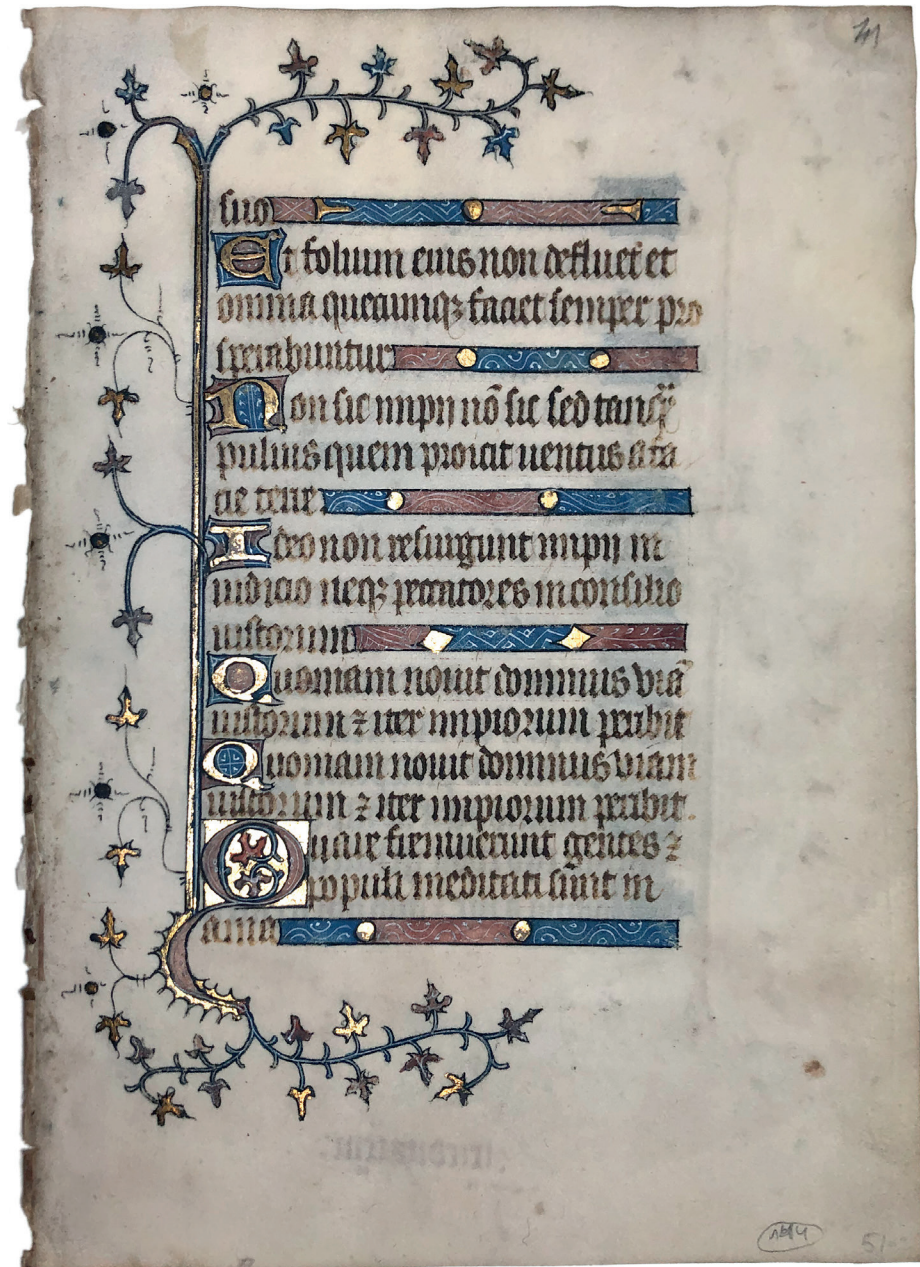 suo
Et folium eius non defluet et
omnia quecumqꝫ faciet semper pro
sperabuntur
Non sic impij nō sic sed tanqͣ
puluis quem proicit uentus a fa
cie terre
Ideo non resurgunt impij in
iudicio neqꝫ peccatores in consilio
iustorum
Quoniam nouit dominus viā
iustorum ⁊ iter impiorum peribit
Quoniam nouit dominus viam
iustorum ⁊ iter impiorum peribit.
Quare fremuerunt gentes ⁊
populi meditati sunt in
ania
51